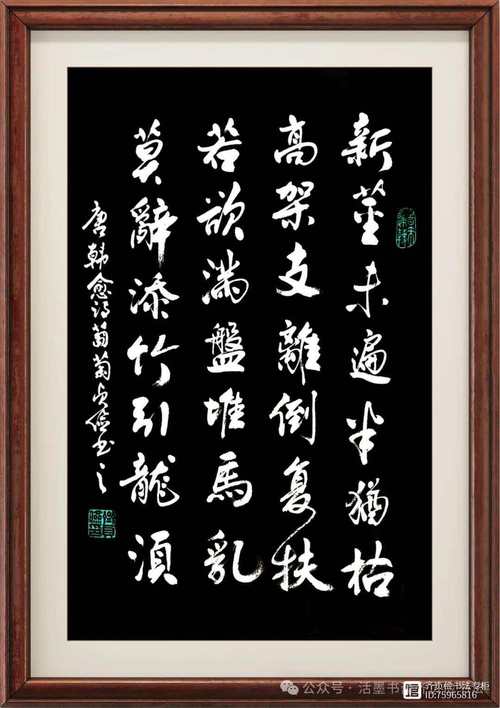 新莖未遍半猶枯
高架支離倒复扶
若欲滿盤堆馬乳
莫辭添竹引龍須
唐韓愈诗葡萄贞俭书之
公众号 · 活墨书
齐贞俭书法专柜
ID:75965816